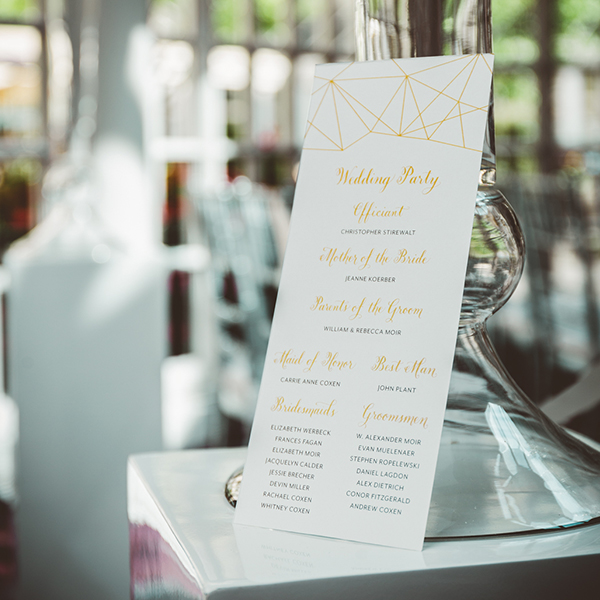 Wedding Party
Officiant
CHRISTOPHER STIREWALT
Mother of the Bride
JEANNE KOERBER
Parents of the Groom
WILLIAM & REBECCA MOIR
Maid of Honor
CARRIE ANNE COXEN
Best Man
JOHN PLANT
Bridesmaids
ELIZABETH WERBECK
FRANCES FAGAN
ELIZABETH MOIR
JACQUELYN CALDER
JESSIE BRECHER
DEVIN MILLER
RACHAEL COXEN
WHITNEY COXEN
Groomsmen
W. ALEXANDER MOIR
EVAN MUELENAER
STEPHEN ROPELEWSKI
DANIEL LAGDON
ALEX DIETRICH
CONOR FITZGERALD
ANDREW COXEN